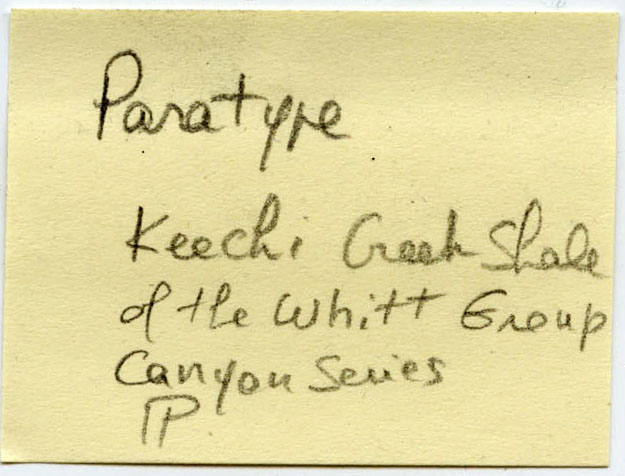 Paratype
Keechi Creek Shale
of the Whitt Group
Canyon Series
IP